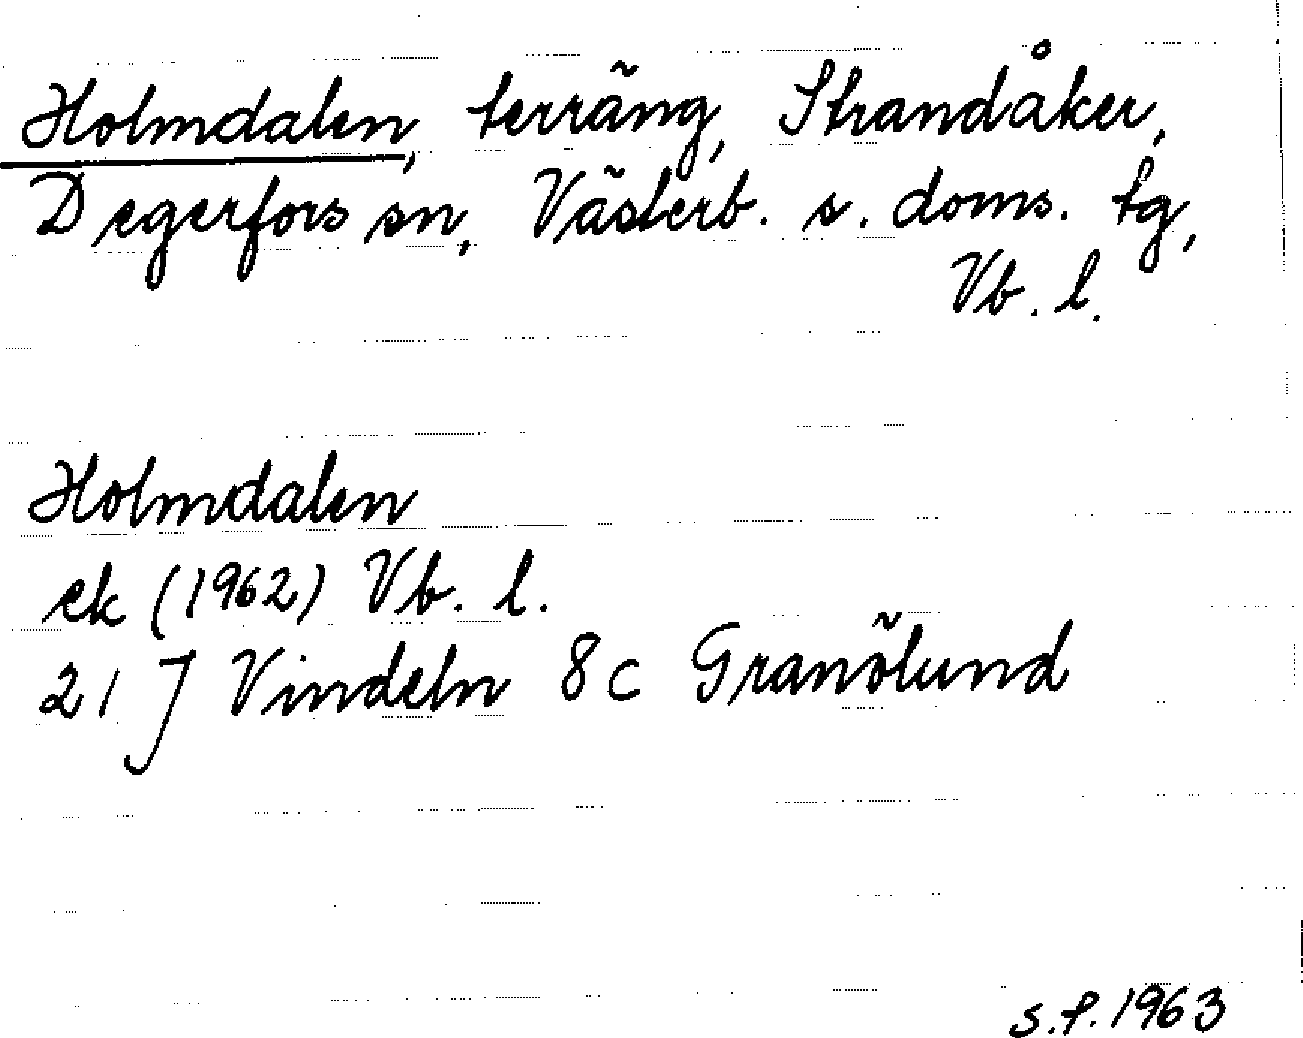 Holmdalen, terräng, Strandåker,
Degerfors sn, Västerb. s. doms. tg,
Vb. l.
Holmdalen
ek (1962) Vb. l.
21 J Vindeln 8c Granölund
s.f. 1963